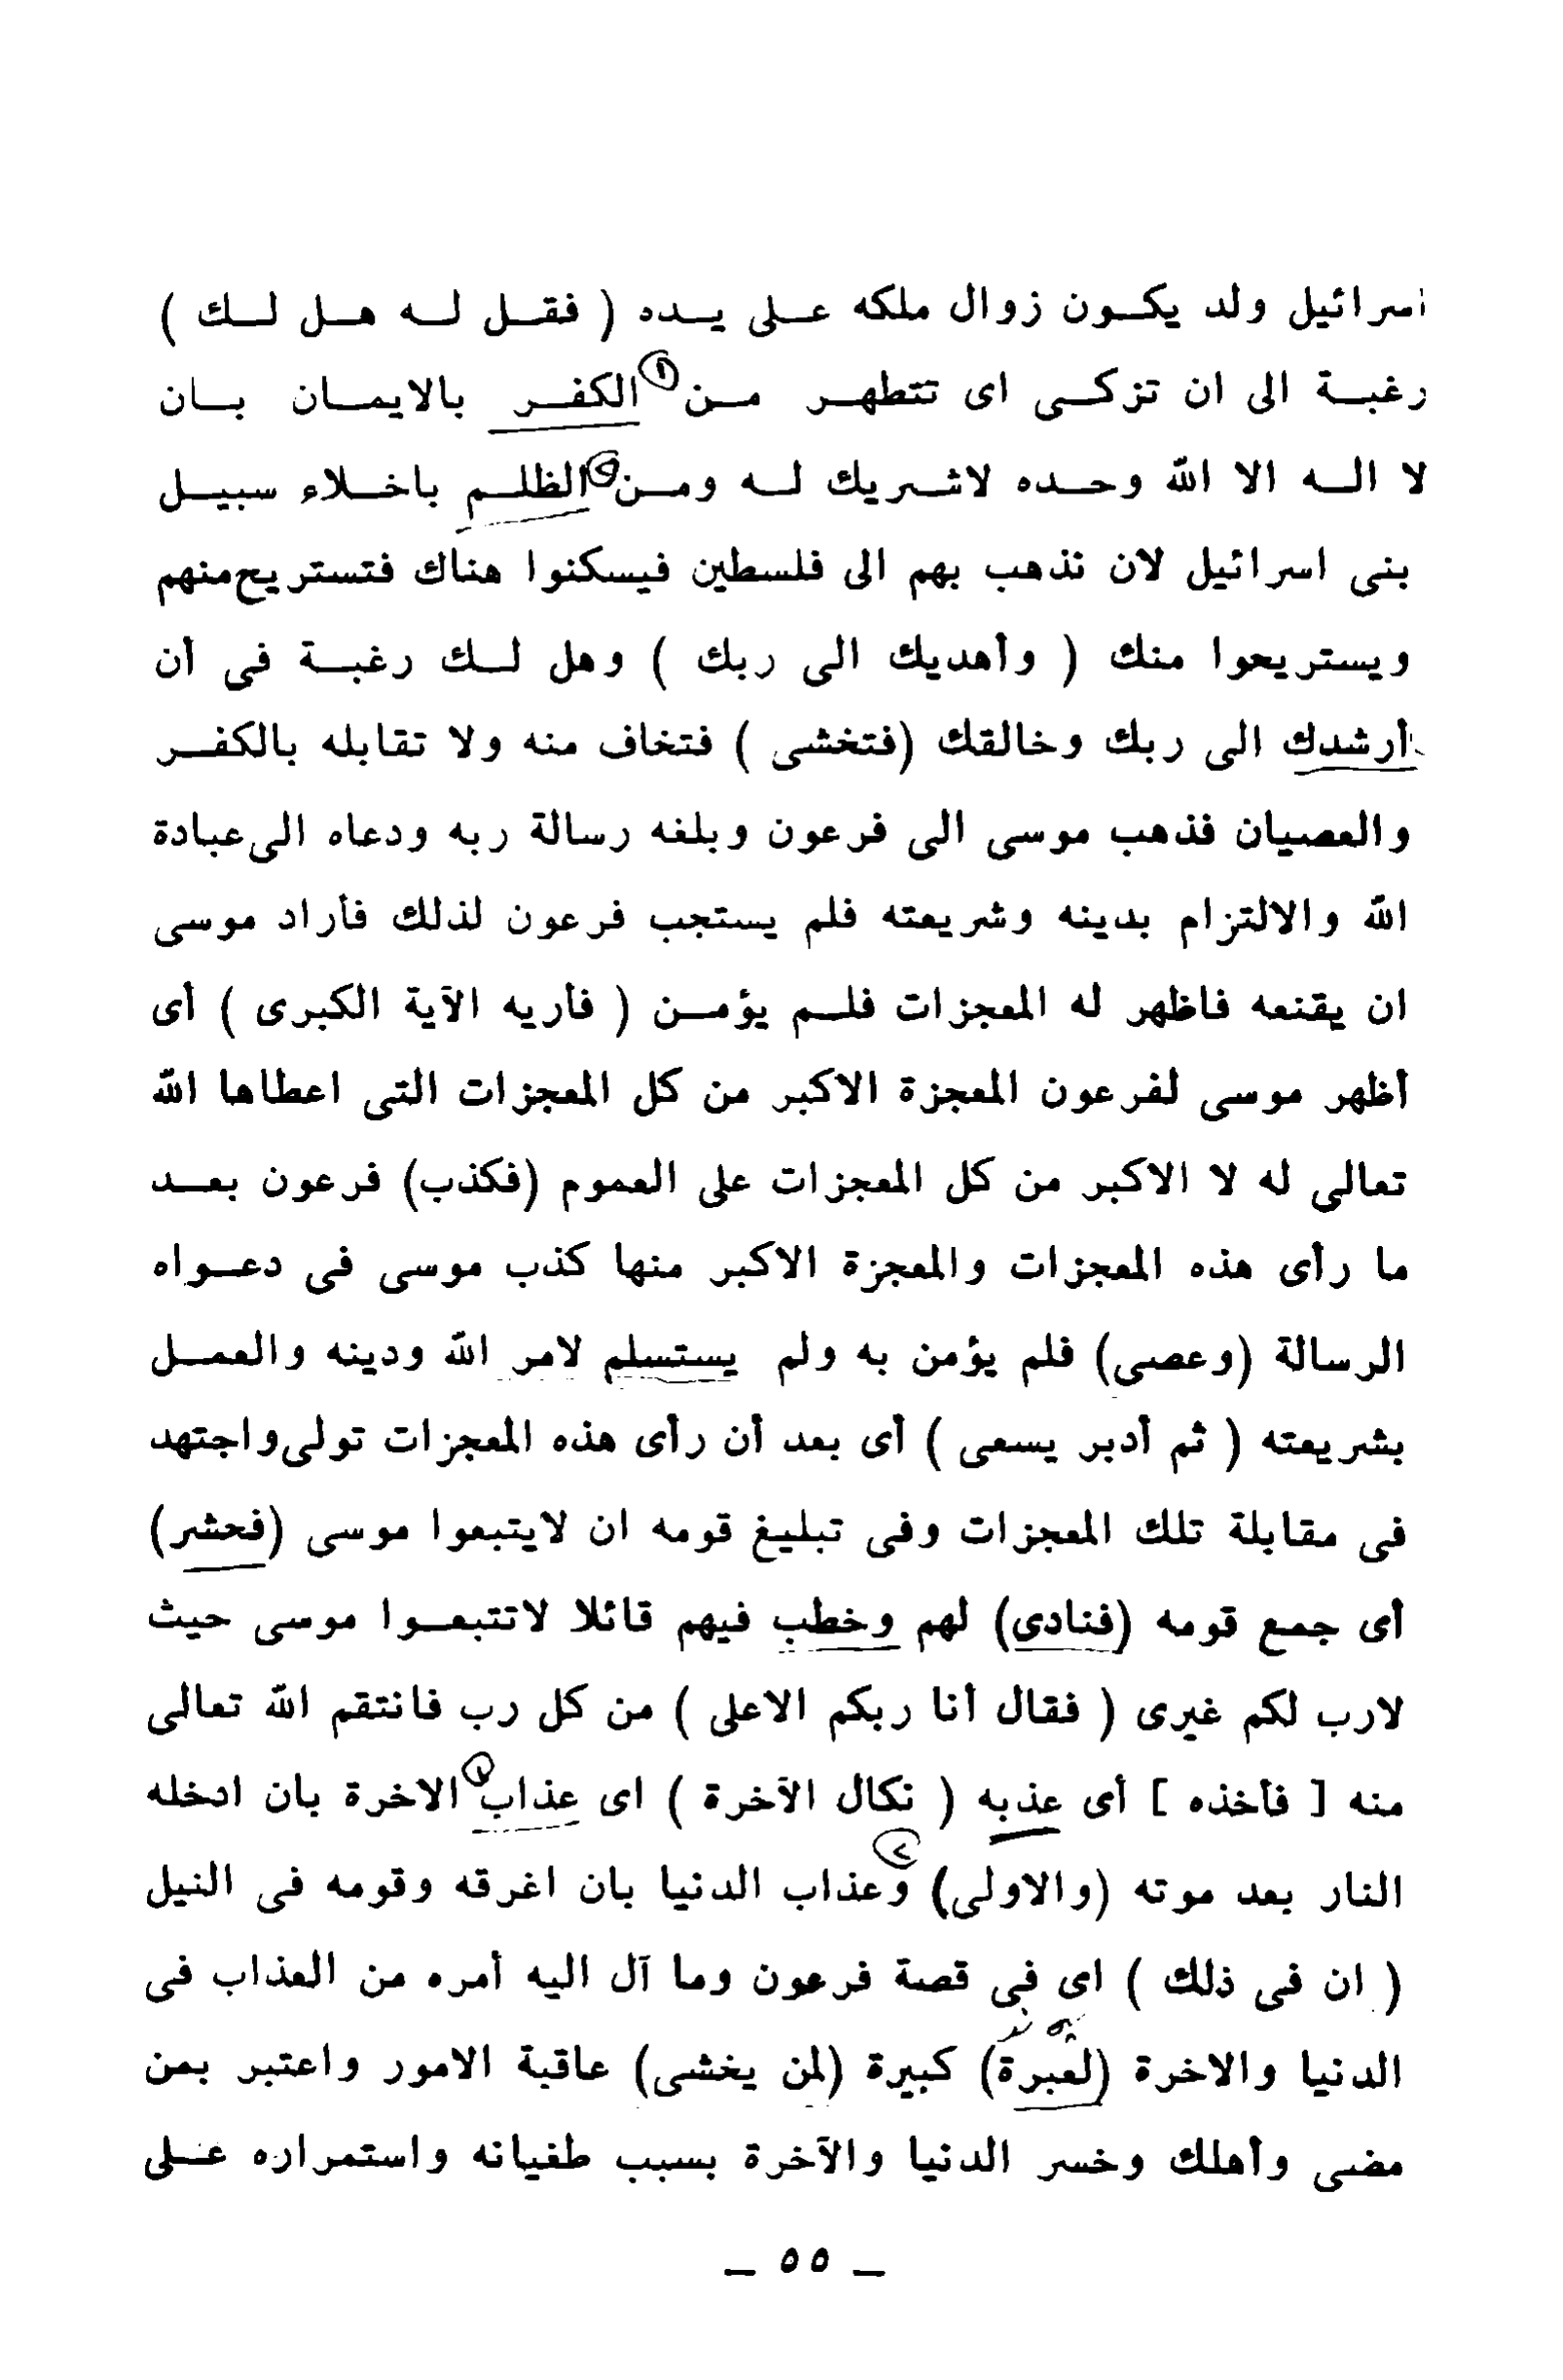 اسرائيل ولد يكون زوال ملكه على يده ( فقل له هل لك )
رغبة الى ان تزكى اى تتطهر من الكفر بالايمان بان
لا اله الا الله وحده لاشريك له ومن الظلم باخلاء سبيل
بنى اسرائيل لان نذهب بهم الى فلسطين فيسكنوا هناك فتستريح منهم
ويستريحوا منك ( وأهديك الى ربك ) وهل لك رغبة فى أن
أرشدك الى ربك وخالقك (فتخشى ) فتخاف منه ولا تقابله بالكفر
والعصيان فذهب موسى الى فرعون وبلغه رسالة ربه ودعاه الى عبادة
الله والالتزام بدينه وشريعته فلم يستجب فرعون لذلك فأراد موسى
ان يقنعه فاظهر له المعجزات فلم يؤمن ( فأريه الآية الكبرى ) أى
أظهر موسى لفرعون المعجزة الاكبر من كل المعجزات التى اعطاها الله
تعالى له لا الاكبر من كل المعجزات على العموم (فكذب) فرعون بعد
ما رأى هذه المعجزات والمعجزة الاكبر منها كذب موسى فى دعواه
الرسالة (وعصى) فلم يؤمن به ولم يستسلم لامر الله ودينه والعمل
بشريعته ( ثم أدبر يسعى ) أى بعد أن رأى هذه المعجزات تولى واجتهد
فى مقابلة تلك المعجزات وفى تبليغ قومه ان لايتبعوا موسى (فحشر)
أى جمع قومه (فنادى) لهم وخطب فيهم قائلا لاتتبعوا موسى حيث
لارب لكم غيرى ( فقال أنا ربكم الاعلى ) من كل رب فانتقم الله تعالى
منه [ فأخذه ] أى عذبه ( نكال الآخرة ) اى عذاب ١ الاخرة بان ادخله
النار بعد موته (والاولى) ٢ وعذاب الدنيا بان اغرقه وقومه فى النيل
( ان فى ذلك ) اى فى قصة فرعون وما آل اليه أمره من العذاب فى
الدنيا والاخرة (لعبرة) كبيرة (لمن يخشى) عاقبة الامور واعتبر بمن
مضى وأهلك وخسر الدنيا والآخرة بسبب طغيانه واستمراره على
ـ ٥٥ ـ